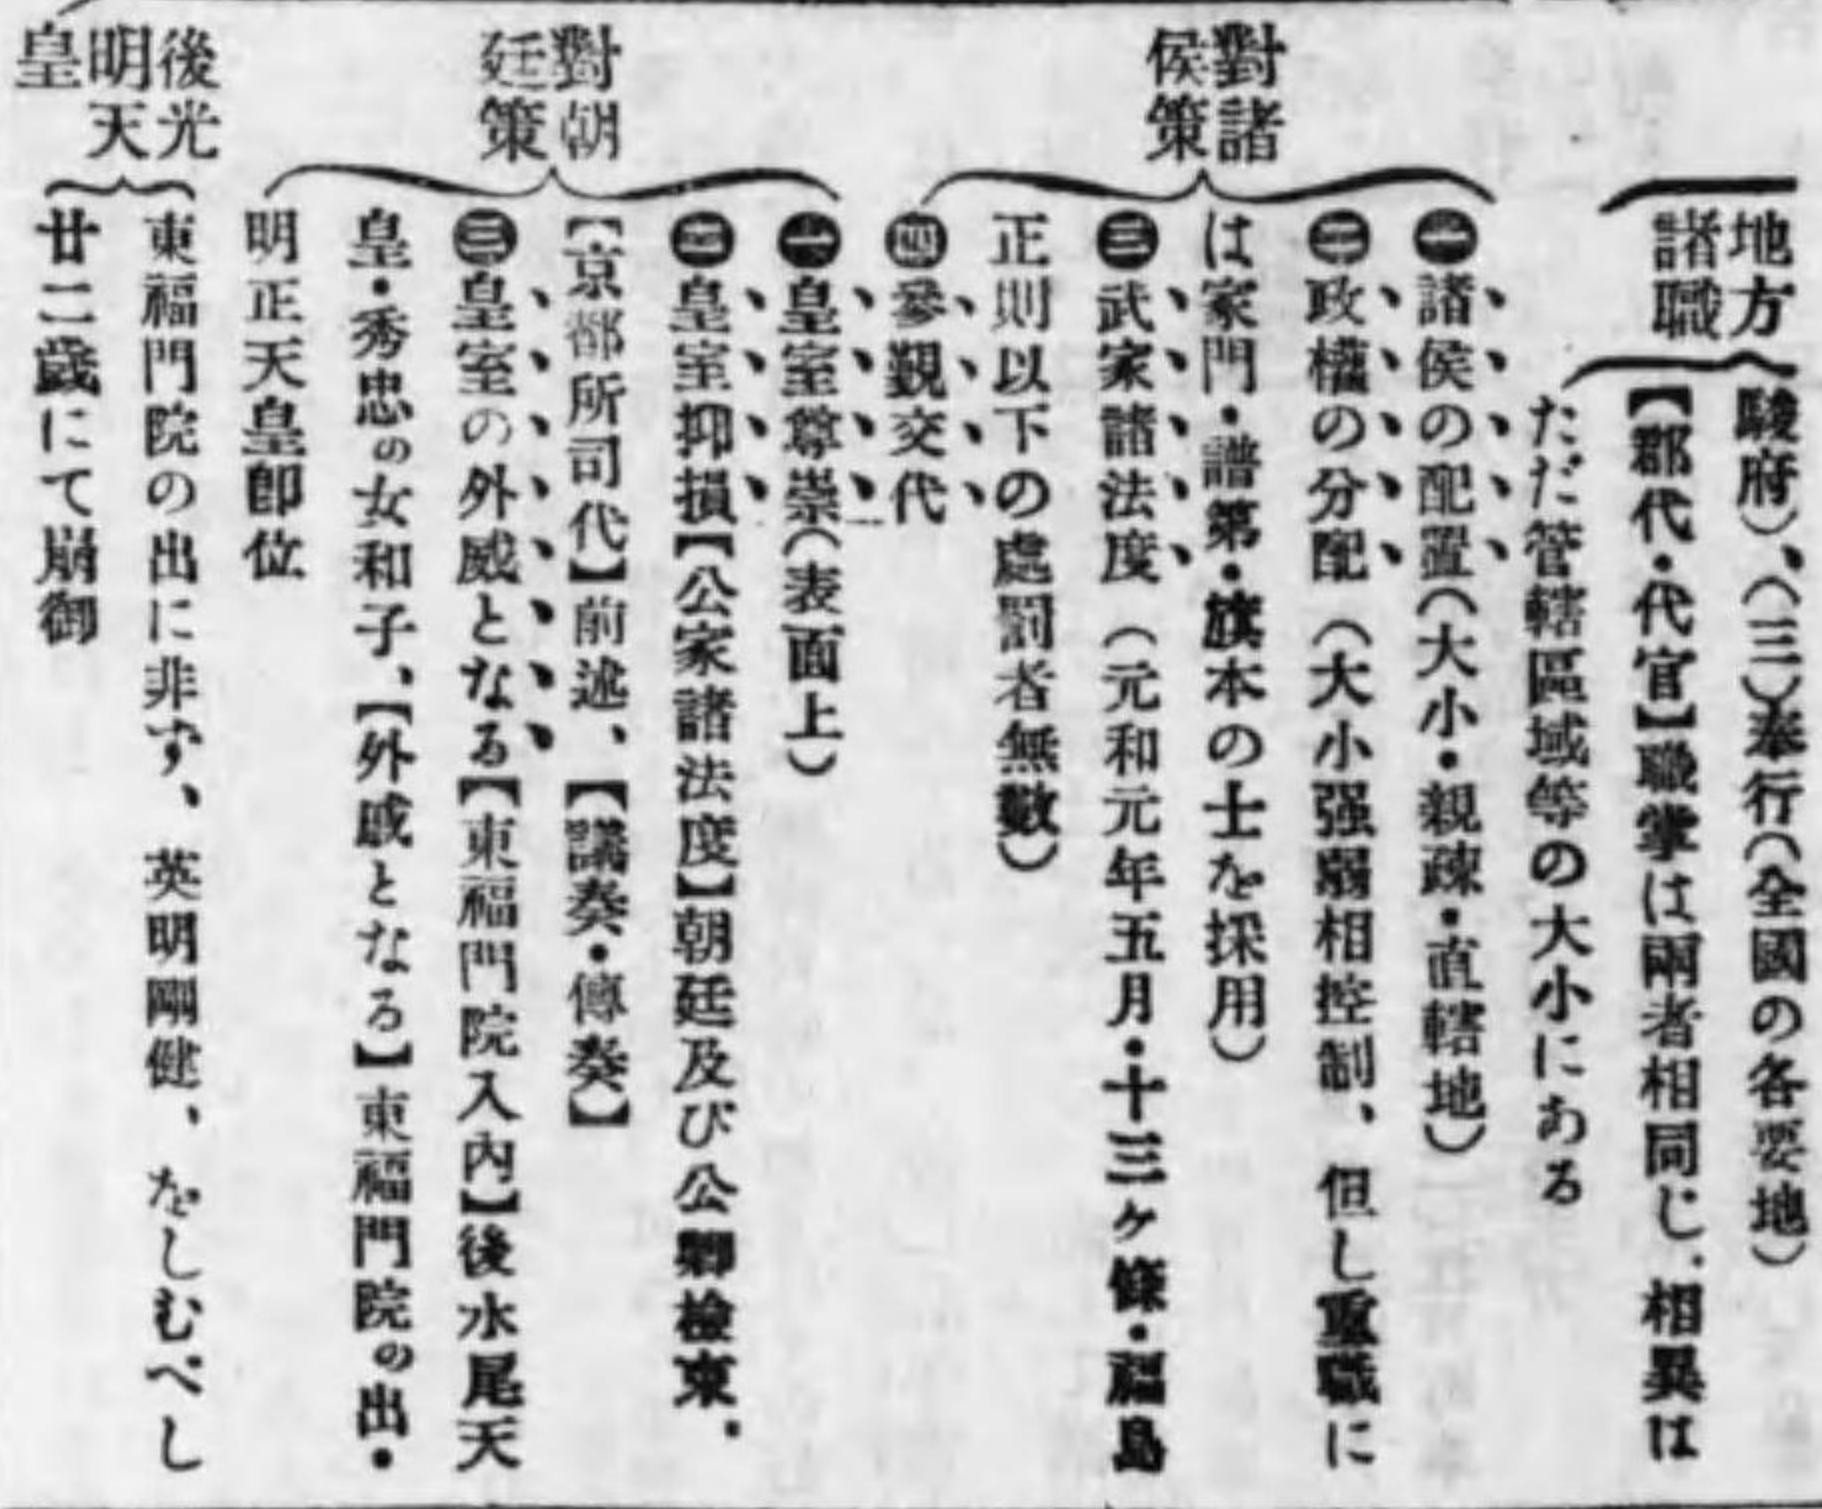 地方
諸職
駿府)、(三)奉行(全國の各要地)
【郡代・代官】職掌は兩者相同じ、相異は
ただ管轄區域等の大小にある
對諸
侯策
㊀諸侯の配置(大小・親疎・直轄地)
㊁政權の分配(大小强弱相控制、但し重職に
は家門・譜第・旗本の士を採用)
㊂武家諸法度(元和元年五月・十三ヶ條・福島
正則以下の處罰者無數)
㊃參覲交代
對朝
廷策
㊀皇室尊崇(表面上)
㊁皇室抑損【公家諸法度】朝廷及び公卿檢束、
【京都所司代】前述、【議奏・傳奏】
㊂皇室の外戚となる【東福門院入內】後水尾天
皇・秀忠の女和子、【外戚となる】東福門院の出・
明正天皇卽位
後光
明天
皇
東福門院の出に非ず、英明剛健、をしむべし
廿二歲にて崩御